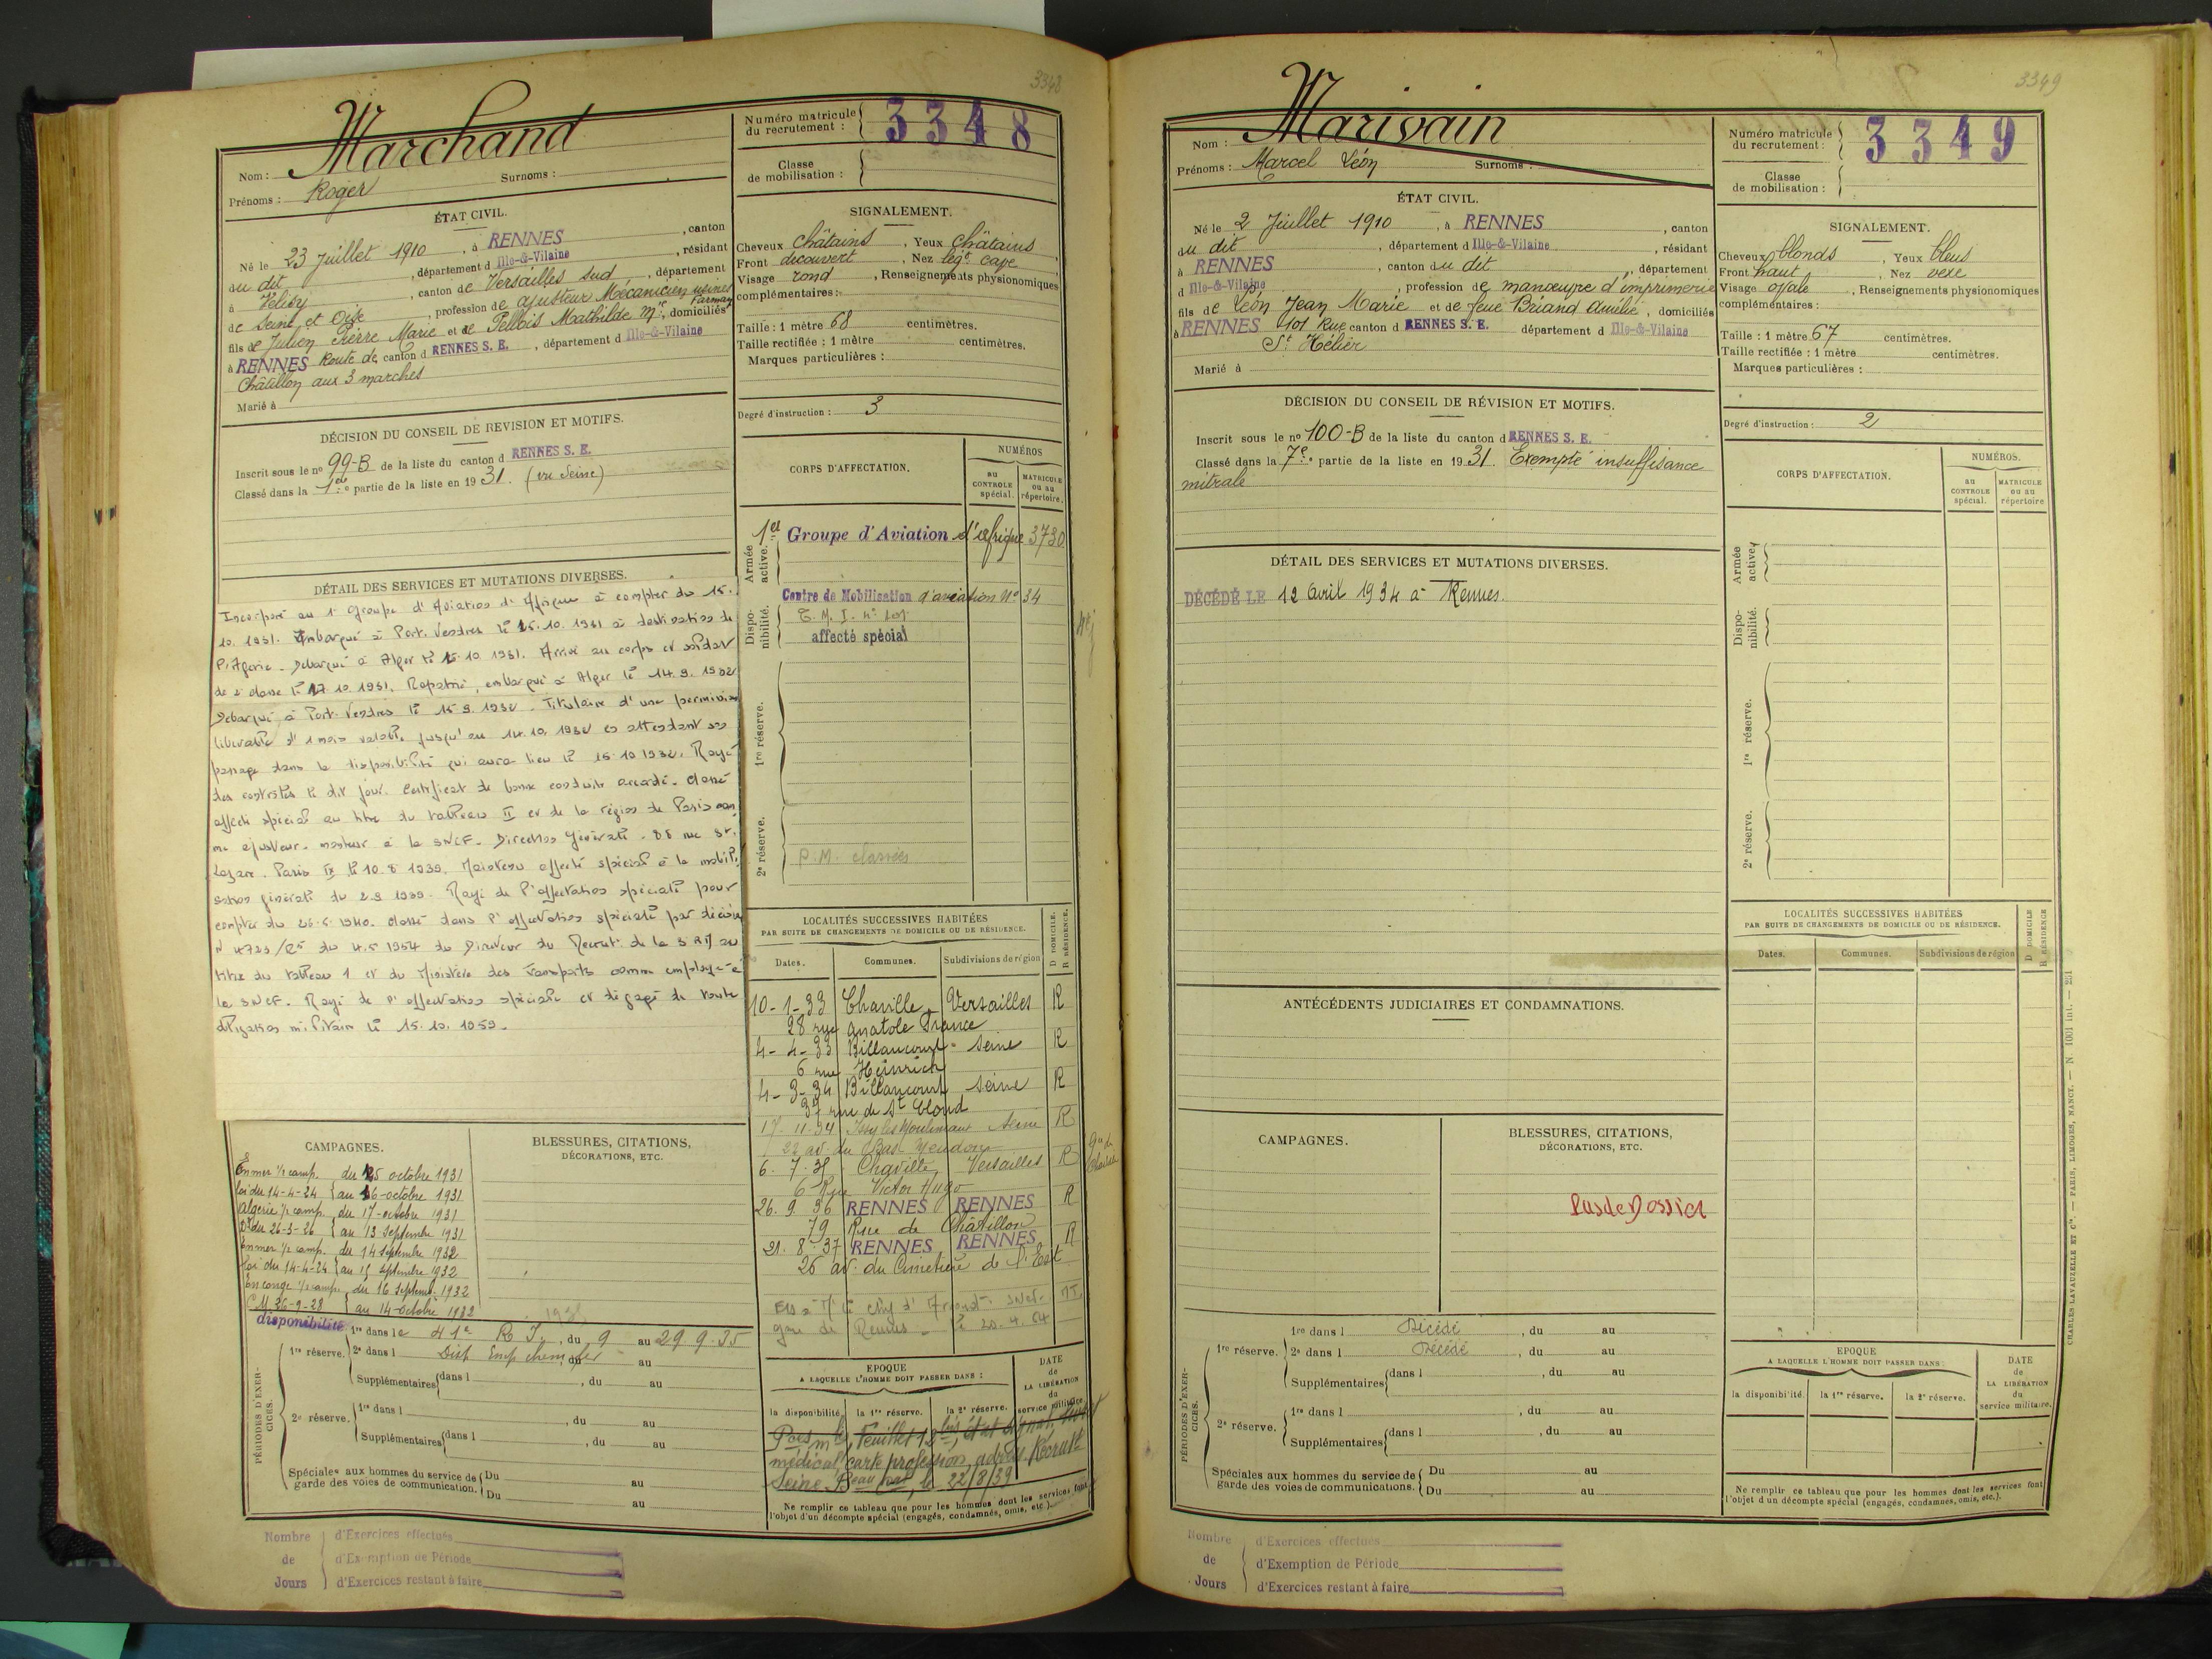 3348
Marchand
Nom :
Prénoms : Roger Surnoms :
Numéro matricule du recrutement : 3348
Classe de mobilisation :
ÉTAT CIVIL.
Né le 23 Juillet 1910, à RENNES, canton
du dit, département d Ille-&-Vilaine, résidant
à Vélizy, canton de Versailles sud, département
de Seine et Oise, profession de ajusteur Mécanicien usines Farman
fils de Julien Pierre Marie et de Pellois Mathilde Mie, domiciliés
à RENNES Route de canton d RENNES S. E., département d Ille-&-Vilaine
Châtillon aux 3 marches
Marié à
SIGNALEMENT.
Cheveux châtains, Yeux châtains
Front découvert, Nez légt cave
Visage rond, Renseignements physionomiques
complémentaires :
Taille : 1 mètre 68 centimètres.
Taille rectifiée : 1 mètre centimètres.
Marques particulières :
Degré d'instruction : 3
DÉCISION DU CONSEIL DE REVISION ET MOTIFS.
Inscrit sous le no 99-B de la liste du canton d RENNES S. E.
Classé dans la 1ère partie de la liste en 1931. (vu Seine)
CORPS D'AFFECTATION.
NUMÉROS
au CONTROLE spécial.
MATRICULE ou au répertoire.
Armée active.
1er Groupe d'Aviation d'Afrique 3730
Dispo- nibilité.
Centre de Mobilisation d'aviation No 34
affecté spécial
1re réserve.
2e réserve.
P.M. classées
DÉTAIL DES SERVICES ET MUTATIONS DIVERSES.
Incorporé au 1er Groupe d'Aviation d'Afrique à compter du 15.
10. 1931. Embarqué à Port. Vendres le 15.10.1931 à destination de
l'Algérie. Débarqué à Alger le 16.10.1931. Arrivé au corps et soldat
de 2e classe le 17.10.1931. Rapatrié, embarqué à Alger le 14.9.1932
Débarqué à Port-Vendres le 15.9.1932. Titulaire d'une permission
libérable d'1 mois valable jusqu'au 14.10.1932 en attendant son
passage dans la disponibilité qui aura lieu le 15.10.1932. Rayé
des contrôles le dit jour. Certificat de bonne conduite accordé. Classé
affecté spécial au titre du tableau II et de la région de Paris com
me ajusteur-monteur à la SNCF. Direction Générale. 88 rue St.
Lazare. Paris IX le 10.8.1939. Maintenu affecté spécial à la mobili-
sation générale du 2.9.1939. Rayé de l'affectation spéciale pour
compter du 26.5.1940. Classé dans l'affectation spéciale par décision
N 4723/RS du 4.5.1954 du Directeur du Recrut. de la 3 RM au
titre du tableau 1 et du Ministère des Transports comme employé à
la SNCF. Rayé de l'affectation spéciale et dégagé de toute
obligation militaire le 15.10.1959.
LOCALITÉS SUCCESSIVES HABITÉES
PAR SUITE DE CHANGEMENTS DE DOMICILE OU DE RÉSIDENCE.
D DOMICILE. R RÉSIDENCE.
Dates. Communes. Subdivisions de région
10-1-33 Chaville Versailles R
28 rue Anatole France
4-4-33 Billancourt Seine R
6 rue Heinrich
4-3-34 Billancourt Seine R
37 rue de St Cloud
17-11-34 Issy les Moulineaux Seine R
22 av. du Bas Meudon
6. 7. 35 Chaville Versailles R
6 Rue Victor Hugo
26. 9. 36 RENNES RENNES R
79 Rue de Châtillon
21. 8. 37 RENNES RENNES R
26 av. du Cimetière de l'Est
gare de Rennes
CAMPAGNES.
En mer ½ camp. du 15 octobre 1931
loi du 14-4-24 au 16 octobre 1931
Algérie ½ camp. du 17 octobre 1931
Dt du 26-3-26 au 13 Septembre 1931
En mer ½ camp. du 14 Septembre 1932
loi du 14-4-24 au 15 septembre 1932
En congé ½ camp. du 16 Septemb. 1932
C.M. 26-9-28 au 14 octobre 1932
BLESSURES, CITATIONS,
DÉCORATIONS, ETC.
disponibilité
PÉRIODES D'EXER- CICES.
1re réserve.
1re dans le 41e R I., du 9 au 29.9.35
2e dans l Disp Emp chem de fer du au
Supplémentaires dans l , du au
2e réserve.
1re dans l , du au
Supplémentaires dans l , du au
Spéciales aux hommes du service de garde des voies de communication.
Du au
Du au
EPOQUE
A LAQUELLE L'HOMME DOIT PASSER DANS :
DATE de LA LIBÉRATION du service militaire
la disponibilité. la 1re réserve. la 2e réserve.
médical carte profession adress. Recrut
Seine, le 22/8/39
Ne remplir ce tableau que pour les hommes dont les services font
l'objet d'un décompte spécial (engagés, condamnés, omis, etc.).
Nombre de Jours
d'Exercices effectués
d'Exemption de Période
d'Exercices restant à faire
3349
Marivain
Nom :
Prénoms : Marcel Léon Surnoms :
Numéro matricule du recrutement : 3349
Classe de mobilisation :
ÉTAT CIVIL.
Né le 2 Juillet 1910, à RENNES, canton
du dit, département d Ille-&-Vilaine, résidant
à RENNES, canton du dit, département
d Ille-&-Vilaine, profession de manœuvre d'imprimerie
fils de Léon Jean Marie et de feue Briand Amélie, domiciliés
à RENNES 101 Rue canton d RENNES S. E. département d Ille-&-Vilaine
St Hélier
Marié à
SIGNALEMENT.
Cheveux blonds, Yeux bleus
Front haut, Nez vexe
Visage ovale, Renseignements physionomiques
complémentaires :
Taille : 1 mètre 67 centimètres.
Taille rectifiée : 1 mètre centimètres.
Marques particulières :
Degré d'instruction : 2
DÉCISION DU CONSEIL DE RÉVISION ET MOTIFS.
Inscrit sous le no 100-B de la liste du canton d RENNES S. E.
Classé dans la 7e partie de la liste en 1931. Exempté insuffisance
mitrale
CORPS D'AFFECTATION.
NUMÉROS.
au CONTROLE spécial.
MATRICULE ou au répertoire
Armée active.
Dispo- nibilité.
1re réserve.
2e réserve.
DÉTAIL DES SERVICES ET MUTATIONS DIVERSES.
DÉCÉDÉ LE 12 Avril 1934 à Rennes.
ANTÉCÉDENTS JUDICIAIRES ET CONDAMNATIONS.
LOCALITÉS SUCCESSIVES HABITÉES
PAR SUITE DE CHANGEMENTS DE DOMICILE OU DE RÉSIDENCE.
D DOMICILE R RÉSIDENCE
Dates. Communes. Subdivisions de région
CAMPAGNES.
BLESSURES, CITATIONS,
DÉCORATIONS, ETC.
Pas de Dossier
PÉRIODES D'EXER- CICES.
1re réserve.
1re dans l Décédé, du au
2e dans l Décédé, du au
Supplémentaires dans l , du au
2e réserve.
1re dans l , du au
Supplémentaires dans l , du au
Spéciales aux hommes du service de garde des voies de communications.
Du au
Du au
EPOQUE
A LAQUELLE L'HOMME DOIT PASSER DANS :
DATE de LA LIBÉRATION du service militaire.
la disponibilité. la 1re réserve. la 2e réserve.
Ne remplir ce tableau que pour les hommes dont les services font
l'objet d'un décompte spécial (engagés, condamnés, omis, etc.).
CHARLES LAVAUZELLE ET Cie. — PARIS, LIMOGES, NANCY. — N. 1001 int. — 231
Nombre de Jours
d'Exercices effectués
d'Exemption de Période
d'Exercices restant à faire